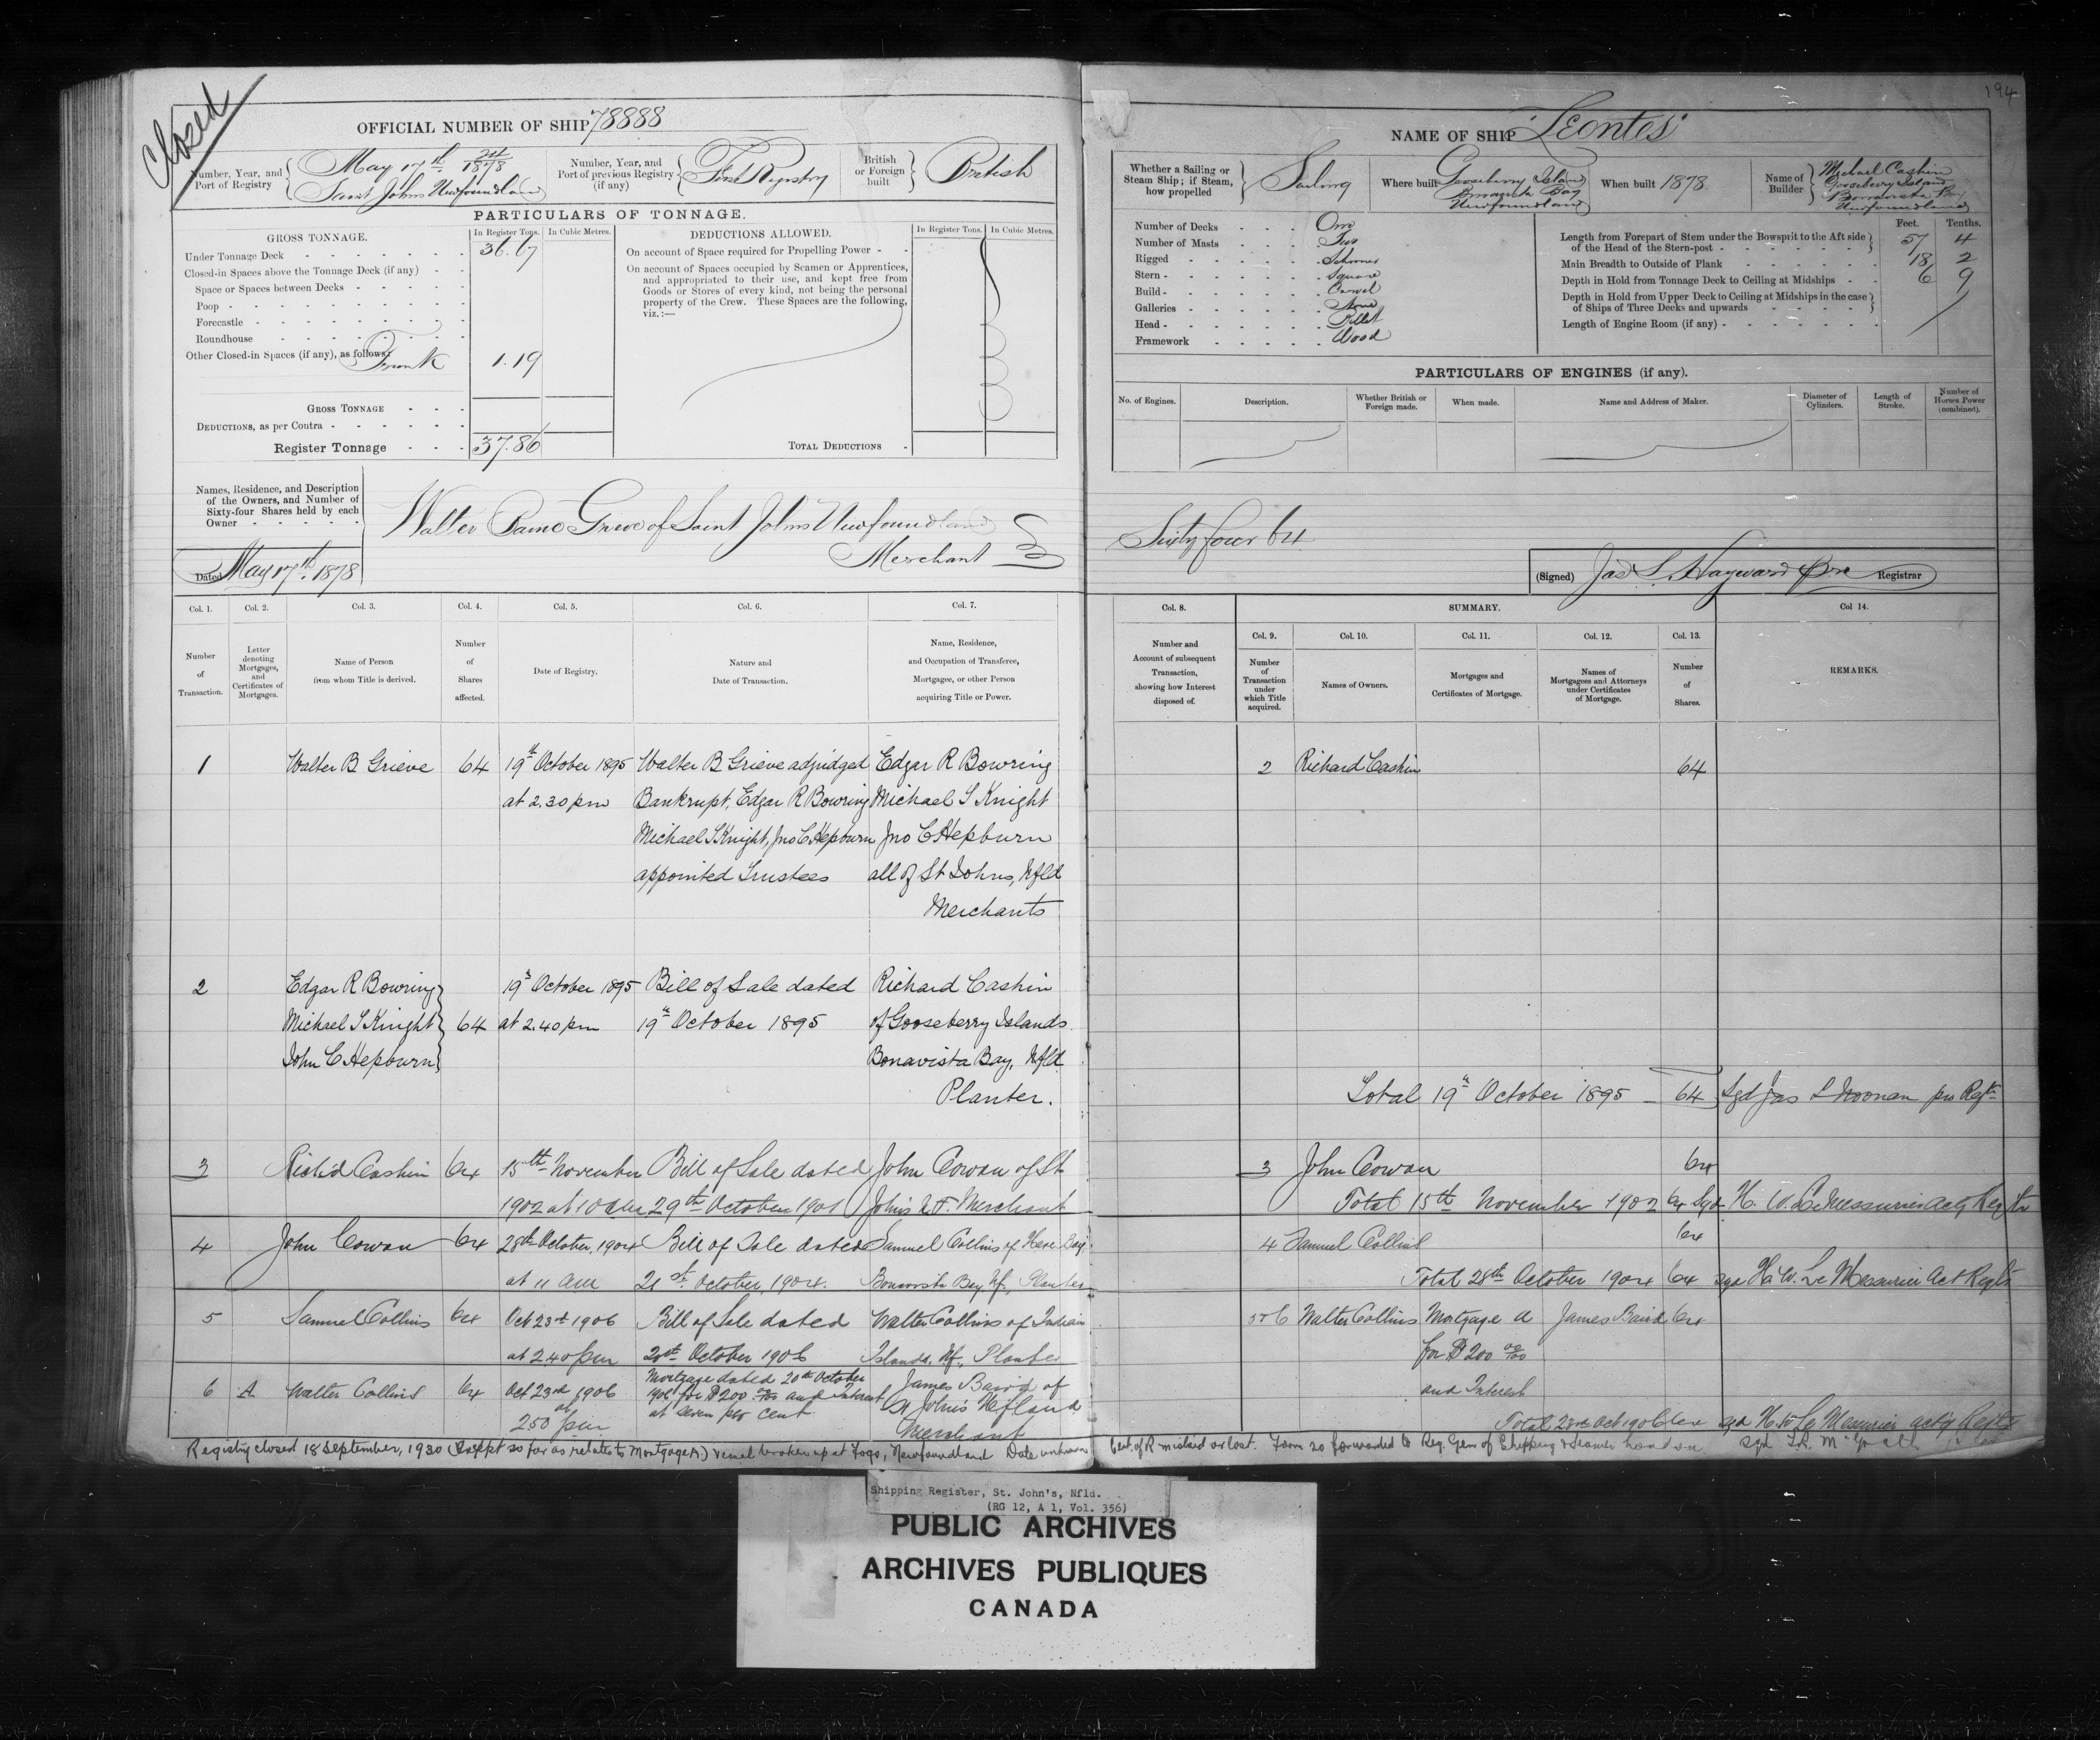 Closed
194
OFFICIAL NUMBER OF SHIP 78888
Number, Year, and Port of Registry
May 17th 24/1878
Saint Johns Newfoundland
Number, Year, and Port of previous Registry (if any)
First Registry
British or Foreign built
British
PARTICULARS OF TONNAGE.
GROSS TONNAGE.
In Register Tons. In Cubic Metres.
Under Tonnage Deck 36.67
Closed-in Spaces above the Tonnage Deck (if any)
Space or Spaces between Decks
Poop
Forecastle
Roundhouse
Other Closed-in Spaces (if any), as follows:
Trunk 1.19
GROSS TONNAGE
DEDUCTIONS, as per Contra
Register Tonnage 37.86
DEDUCTIONS ALLOWED.
In Register Tons. In Cubic Metres.
On account of Space required for Propelling Power
On account of Spaces occupied by Seamen or Apprentices,
and appropriated to their use, and kept free from
Goods or Stores of every kind, not being the personal
property of the Crew. These Spaces are the following,
viz.:—
TOTAL DEDUCTIONS
Names, Residence, and Description
of the Owners, and Number of
Sixty-four Shares held by each
Owner
Walter Baine Grieve of Saint Johns Newfoundland
Merchant
Dated May 17th 1878
NAME OF SHIP "Leontes"
Whether a Sailing or Steam Ship; if Steam, how propelled
Sailing
Where built
Gooseberry Island
Bonavista Bay
Newfoundland
When built 1878
Name of Builder
Michael Cashin
Gooseberry Island
Bonavista Bay
Newfoundland
Number of Decks One
Number of Masts Two
Rigged Schooner
Stern Square
Build Carvel
Galleries None
Head Billet
Framework Wood
Feet. Tenths.
Length from Forepart of Stem under the Bowsprit to the Aft side
of the Head of the Stern-post 57 4
Main Breadth to Outside of Plank 18 2
Depth in Hold from Tonnage Deck to Ceiling at Midships 6 9
Depth in Hold from Upper Deck to Ceiling at Midships in the case
of Ships of Three Decks and upwards
Length of Engine Room (if any)
PARTICULARS OF ENGINES (if any).
No. of Engines. Description. Whether British or Foreign made. When made. Name and Address of Maker. Diameter of Cylinders. Length of Stroke. Number of Horses Power (combined).
Sixty four 64
(Signed) Jas L Hayward pro Registrar
Col. 1. Col. 2. Col. 3. Col. 4. Col. 5. Col. 6. Col. 7.
Number of Transaction.
Letter denoting Mortgages, and Certificates of Mortgages.
Name of Person from whom Title is derived.
Number of Shares affected.
Date of Registry.
Nature and Date of Transaction.
Name, Residence, and Occupation of Transferee, Mortgagee, or other Person acquiring Title or Power.
Col. 8. SUMMARY. Col 14.
Col. 9. Col. 10. Col. 11. Col. 12. Col. 13.
Number and Account of subsequent Transaction, showing how Interest disposed of.
Number of Transaction under which Title acquired.
Names of Owners.
Mortgages and Certificates of Mortgage.
Names of Mortgagees and Attorneys under Certificates of Mortgage.
Number of Shares.
REMARKS.
1 Walter B Grieve 64 19th October 1895 Walter B Grieve adjudged Edgar R Bowring
at 2.30 pm Bankrupt, Edgar R Bowring Michael S Knight
Michael S Knight, Jno C Hepburn Jno C Hepburn
appointed Trustees all of St Johns, Nfld
Merchants
2 Edgar R Bowring 19th October 1895 Bill of Sale dated Richard Cashin
Michael S Knight 64 at 2.40 pm 19th October 1895 of Gooseberry Islands
John C Hepburn Bonavista Bay, Nfld
Planter.
3 Rich'd Cashin 64 15th November Bill of Sale dated John Cowan of St
1902 at 10 am 29th October 1901 John's N.F. Merchant
4 John Cowan 64 28th October, 1904 Bill of Sale dated Samuel Collins of Hare Bay
at 11 am 21st October, 1904. Bonavista Bay Nf., Planter
5 Samuel Collins 64 Oct 23rd 1906 Bill of Sale dated Walter Collins of Indian
at 2 40 pm 20th October 1906 Islands, Nf., Planter
6 A Walter Collins 64 Oct 23rd 1906 at 250 pm
Mortgage dated 20th October
1906 for $200 00/100 and Interest
at seven per cent
James Baird of
St John's Nfland
Merchant
2 Richard Cashin 64
Total 19th October 1895 64 Sgd Jas L Noonan pro Regtr
3 John Cowan 64
Total 15th November 1902 64 Sgd H. W. LeMessurier Actg Regtr
4 Samuel Collins 64
Total 28th October 1904 64 sgd H. W. Le Messurier Act Regtr
5 & 6 Walter Collins Mortgage A James Baird 64
for $200 00/100
and Interest
Total 23rd Oct 1906 64 sgd H W Le Messurier actg Regtr
Registry closed 18 September, 1930 (Except so far as relates to Mortgage A.) vessel broken up at Fogo, Newfoundland Date unknown
Cert. of R mislaid or lost. Form 20 forwarded to Reg. Gen of Shipping & Seamen London
Shipping Register, St. John's, Nfld.
(RG 12, A 1, Vol. 356)
PUBLIC ARCHIVES
ARCHIVES PUBLIQUES
CANADA